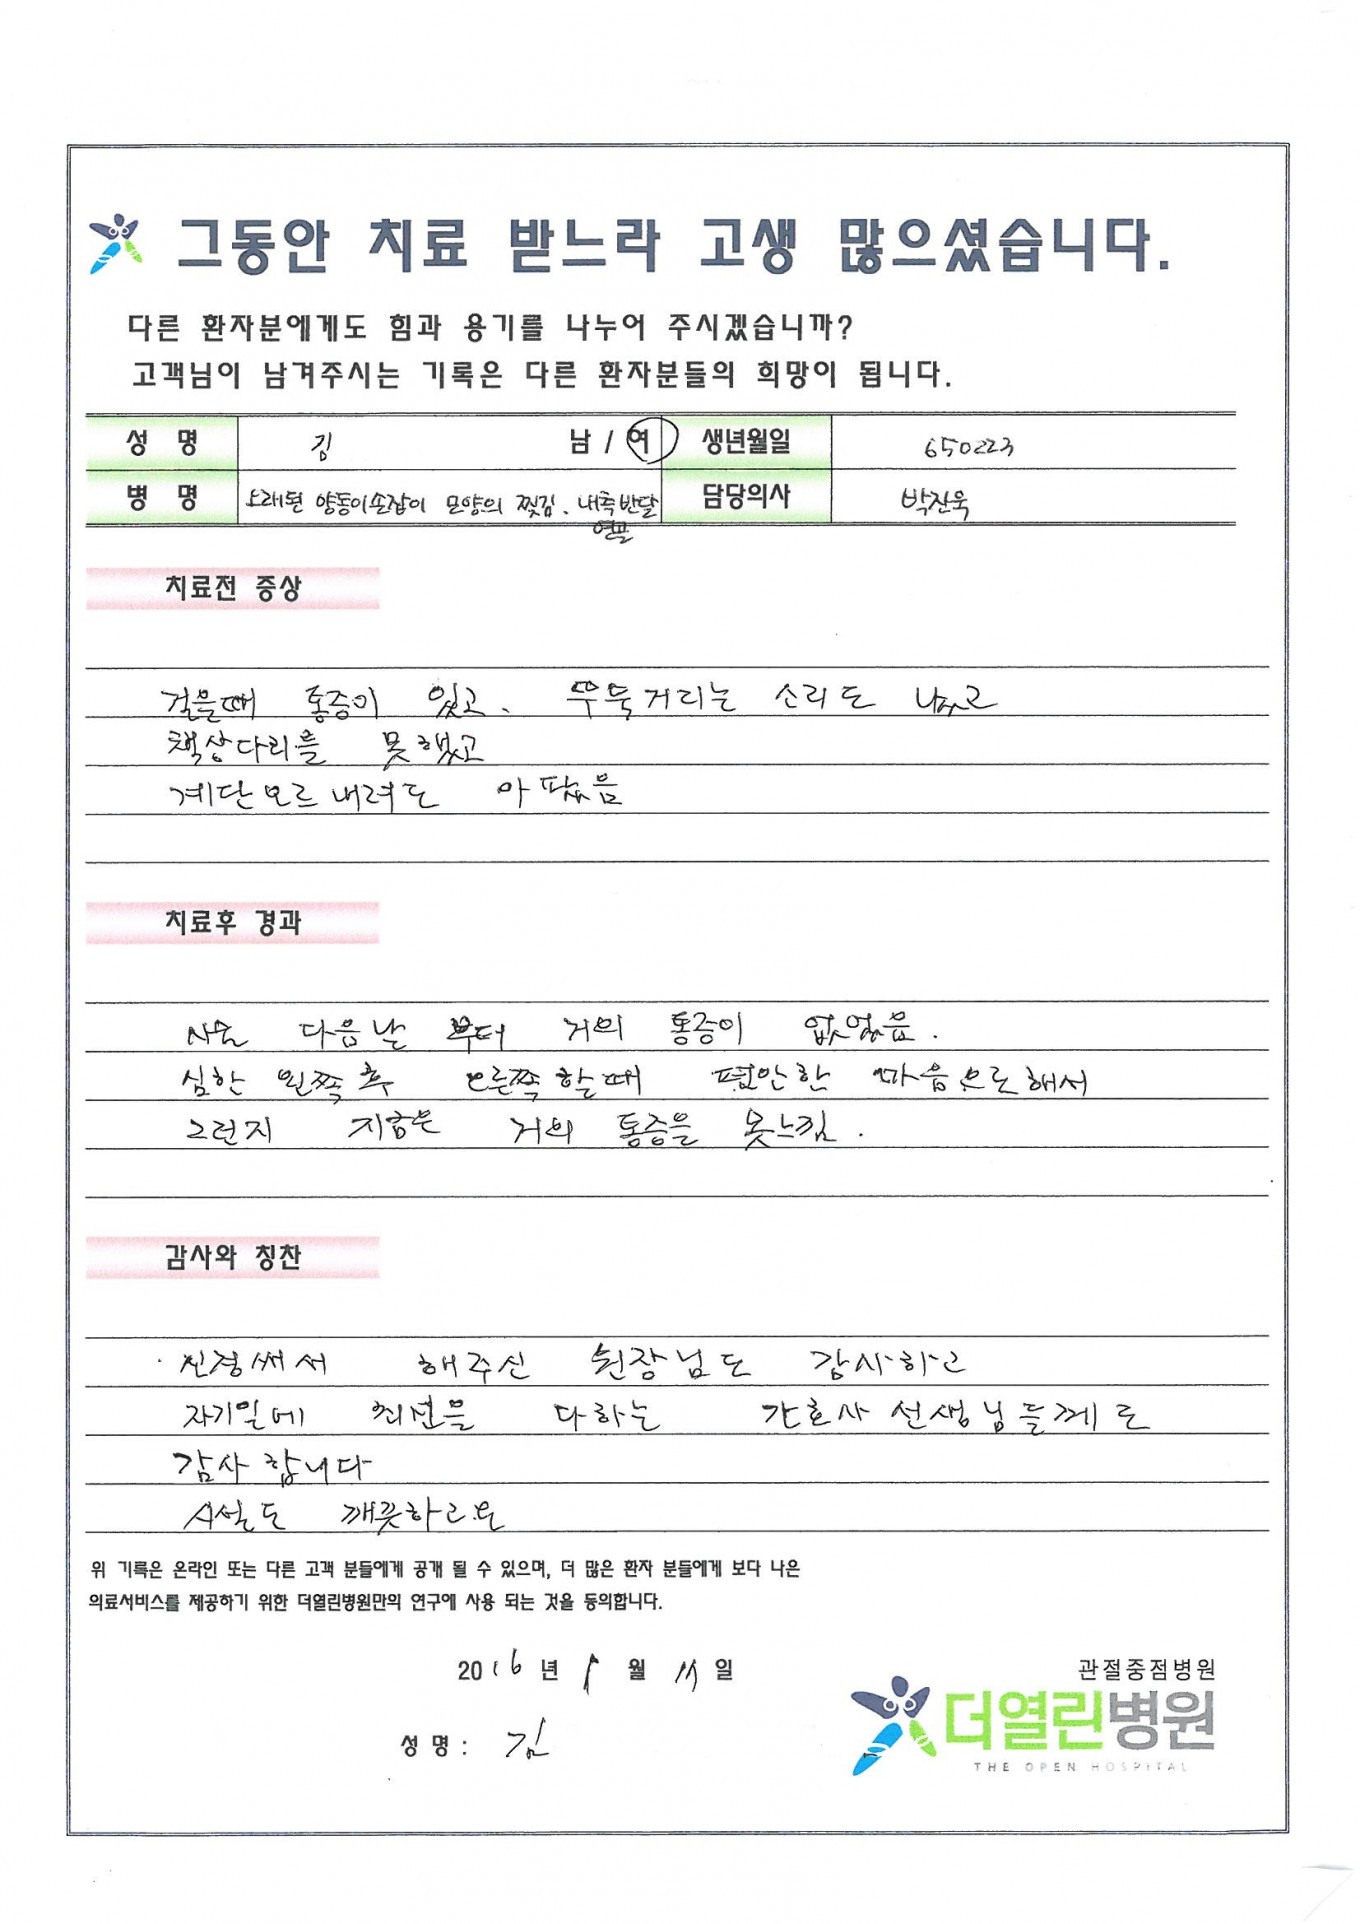 그동안 치료 받느라 고생 많으셨습니다.
다른 환자분에게도 힘과 용기를 나누어 주시겠습니까?
고객님이 남겨주시는 기록은 다른 환자분들의 희망이 됩니다.
성 명 김 남 / 여 생년월일 650223
병 명 오래된 양동이손잡이 모양의 찢김. 내측반달 담당의사 박진욱
연골
치료전 증상
걸을때 통증이 있고. 무뚝거리는 소리도 나고
책상다리를 못했고
계단오르내려도 아팠음
치료후 경과
수술 다음날 부터 거의 통증이 없었음.
심한 왼쪽 후 오른쪽 할때 편안한 마음으로해서
그런지 지금은 거의 통증을 못느낌.
감사와 칭찬
신경써서 해주신 원장님도 감사하고
자기일에 최선을 다하는 간호사 선생님들께도
감사 합니다
시설도 깨끗하고요
위 기록은 온라인 또는 다른 고객 분들에게 공개 될 수 있으며, 더 많은 환자 분들에게 보다 나은
의료서비스를 제공하기 위한 더열린병원만의 연구에 사용 되는 것을 동의합니다.
2016 년 월 일
성 명 : 김
관절중점병원
더열린병원
THE OPEN HOSPITAL